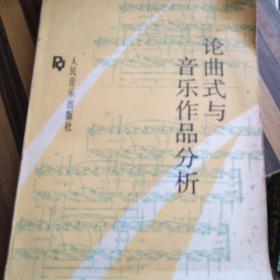 论曲式与
音乐作品分析
人民音乐出版社